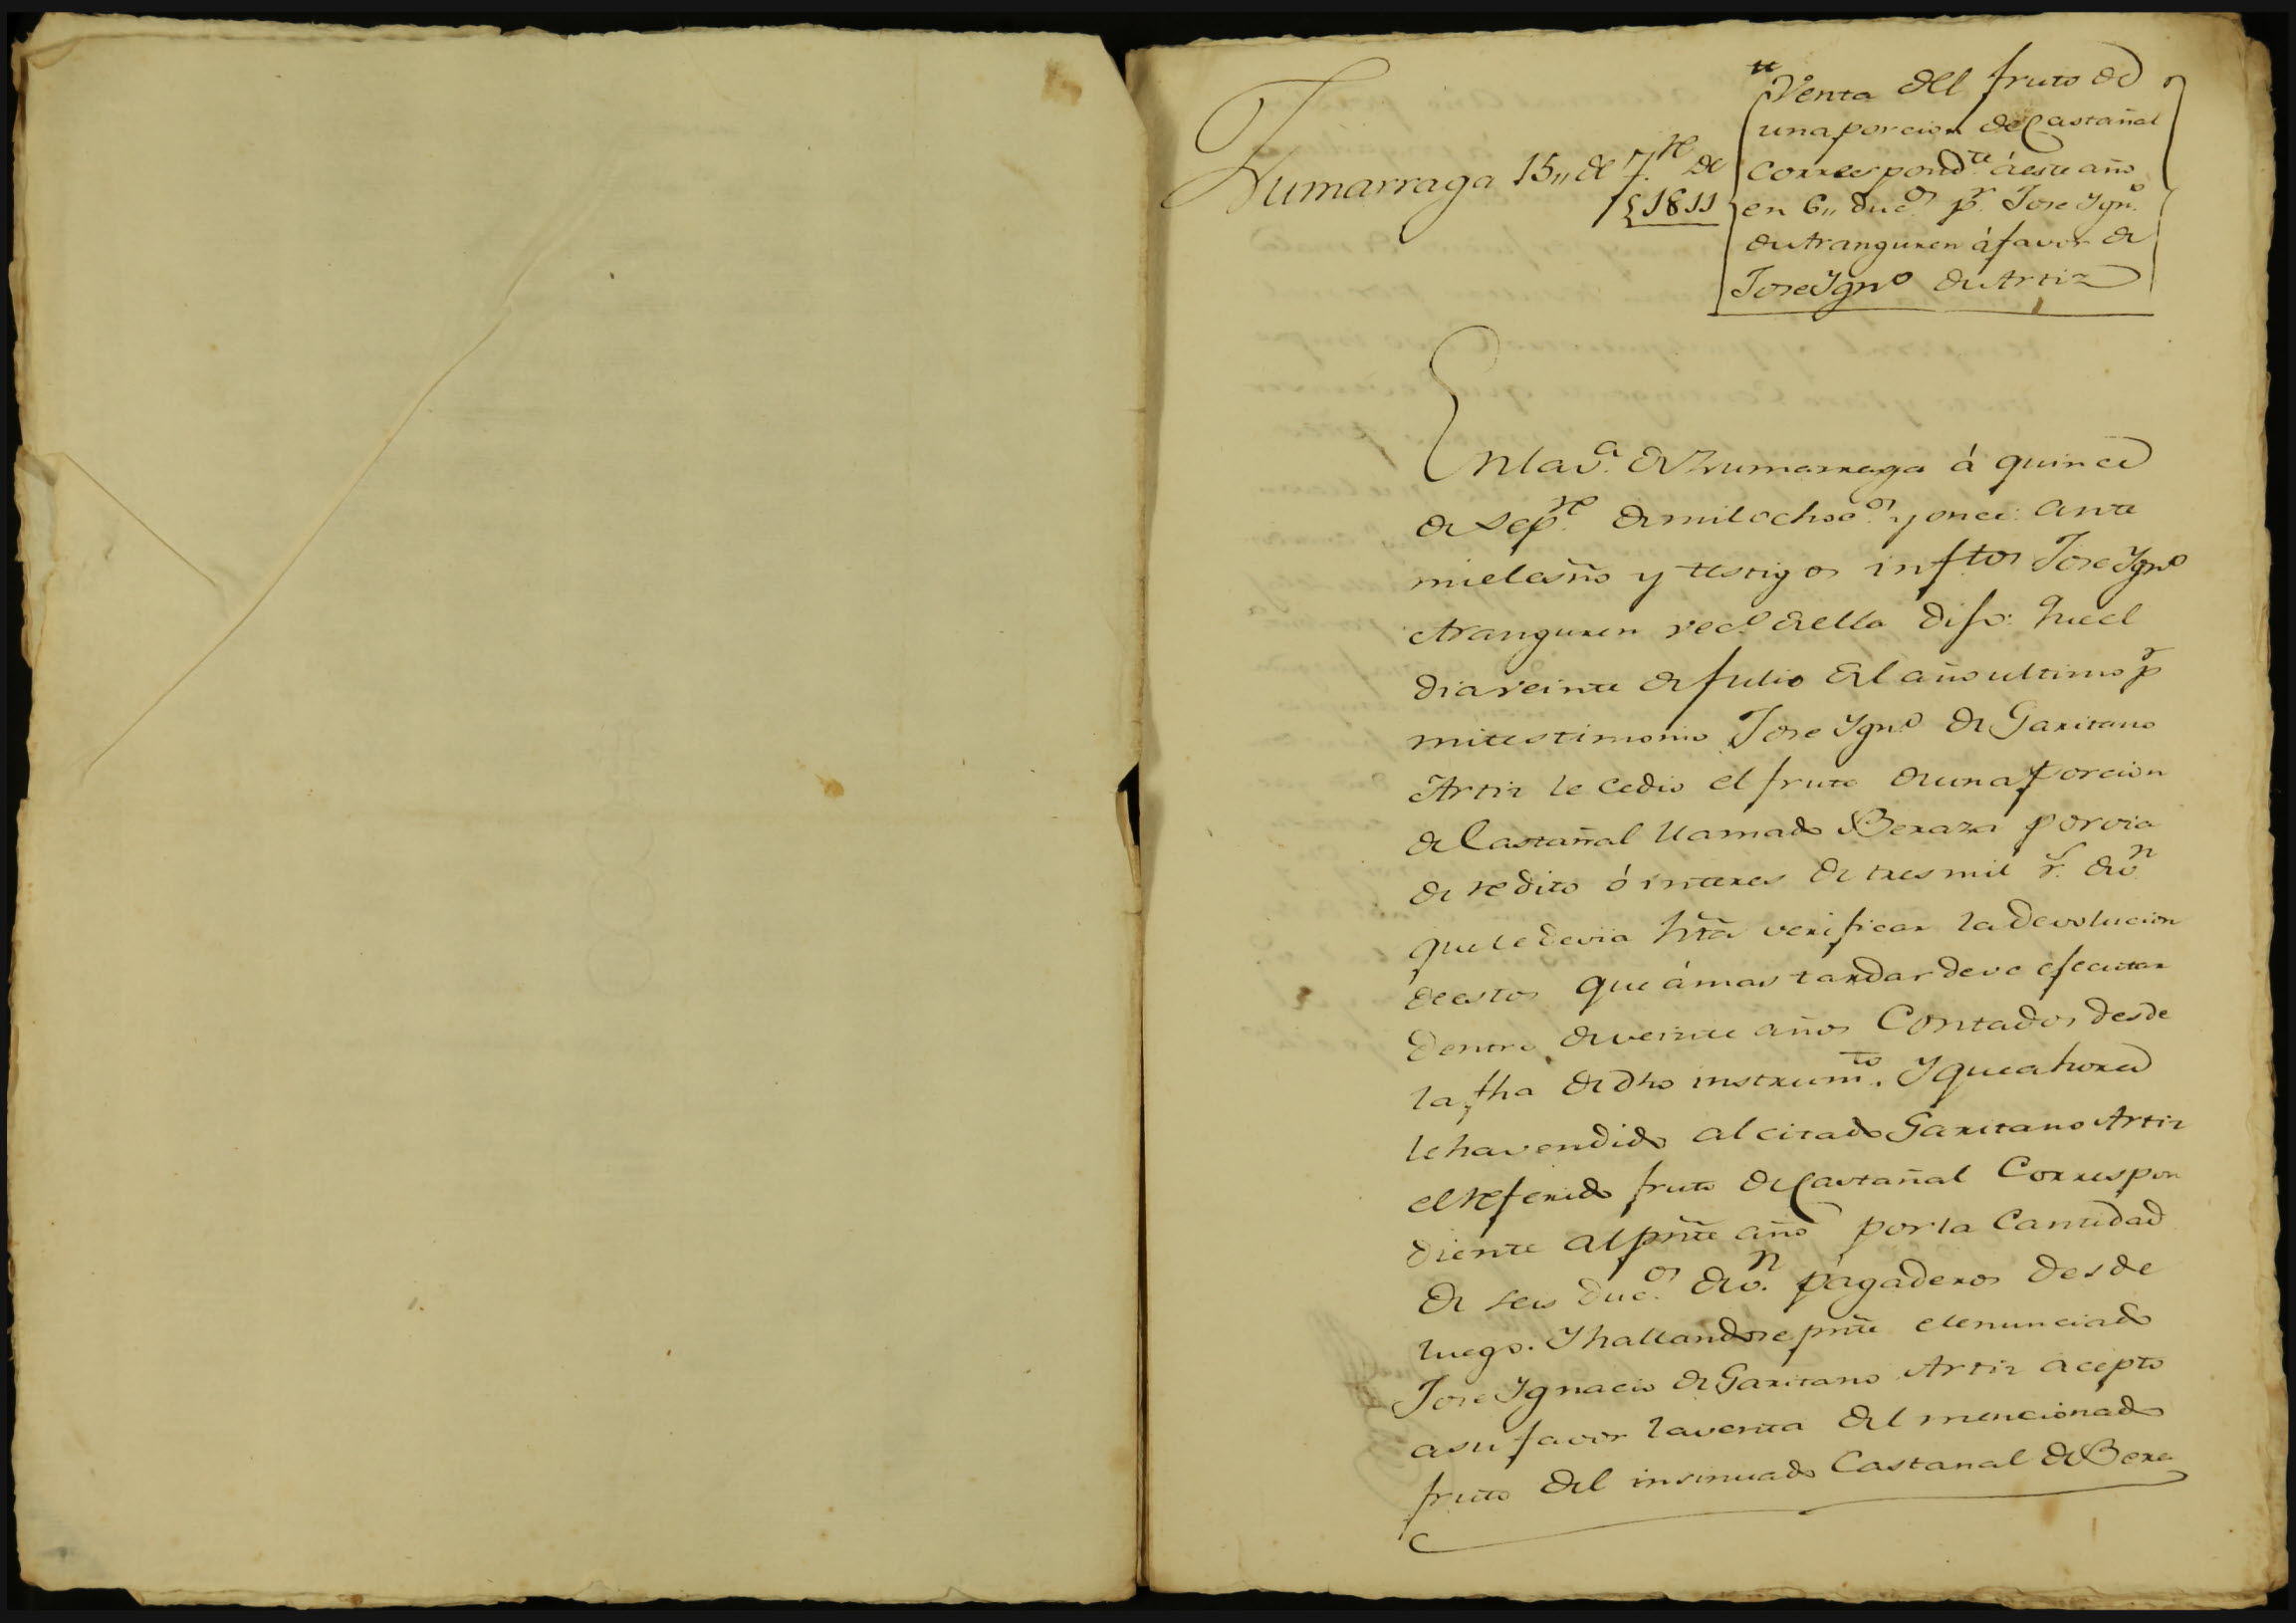 Zumarraga 15,, de 7.re de
1811
Venta del fruto de
una porcion de Castañal
correspond.te á este año
en 6,, duc.os p.r Jose Ygn.o
de Aranguren á favor de
Jose Ygn.o de Artiz
En la v.a de Zumarraga á quince
de Sep.re de mil ochoc.os y once: ante
mi el esño y testigos inftos Jose Ygn.o
Aranguren vec.o de ella dijo: Que el
dia veinte de Julio del año ultimo p.r
mi testimonio Jose Ygn.o de Garitano
Artiz le cedio el fruto de una porcion
de Castañal llamado Beraza por via
de redito ó interes de tres mil r.s de v.n
que le devia hta verificar la devolucion
de estos que á mas tardar deve efecutar
dentro de veinte años Contados desde
la fha de dho instrum.to. Y que ahora
le ha vendido al citado Garitano Artiz
el referido fruto de Castañal Correspon
diente al pñte año por la Cantidad
de seis duc.os de v.n pagaderos desde
luego. Y hallandose pñte el enunciado
Jose Ygnacio de Garitano Artiz acepto
a su favor la venta del mencionado
fruto del insinuado Castanal de Bera